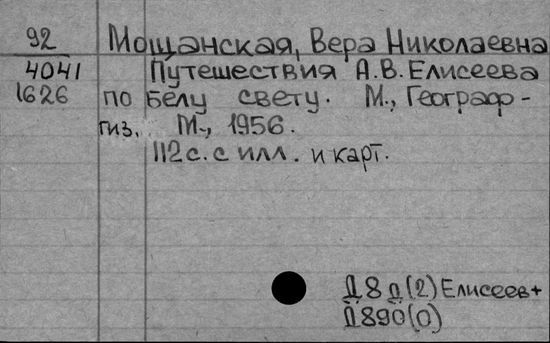 92
4041
1626
Мощанская, Вера Николаевна
Путешествия А.В. Елисеева
по белу свету. М., Географ-
гиз. М., 1956.
112 с. с илл. и карт.
Д8д(2) Елисеев+
Д890(0)